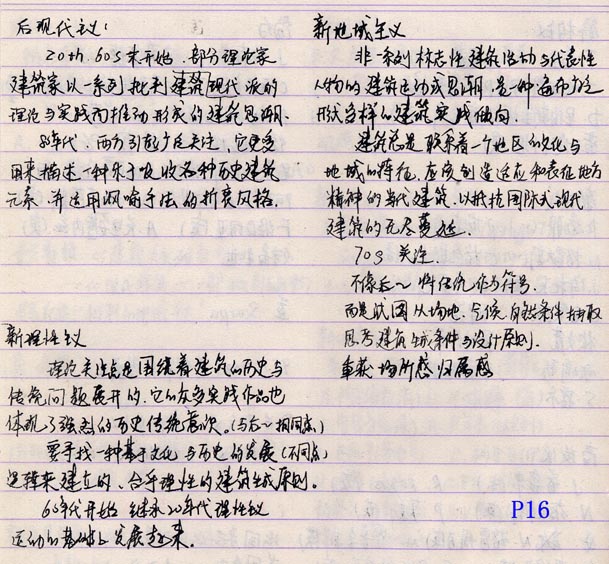 后现代主义:
20th.60s末开始.部分理论家
建筑家以一系列批判建筑现代派的
理论与实践而推动形成的建筑思潮.
80年代.西方引起广泛关注.它更多
用来描述一种乐于吸收各种历史建筑
元素.并运用讽喻手法的折衷风格.
新理性主义
理论关注点是围绕着建筑的历史与
传统问题展开的.它的众多实践作品也
体现了强烈的历史传统意识.(与后~相同点)
要寻找一种基于文化与历史的发展(不同点)
逻辑来建立的、合乎理性的建筑生成原则.
60年代开始 继承20年代理性主义
运动的基础上发展起来.
新地域主义
非一系列标志性建筑活动与代表性
人物的建筑运动或思潮.是一种遍布广泛
形式多样的建筑实践倾向.
建筑总是联系着一个地区的文化与
地域的特征.应度创造适应和表征地方
精神的当代建筑.以抵抗国际式现代
建筑的无尽蔓延
70s 关注.
不像后~将传统作为符号.
而是试图从场地、气候、自然条件
思考建筑生成条件与设计原则.
重获场所感归属感
P16